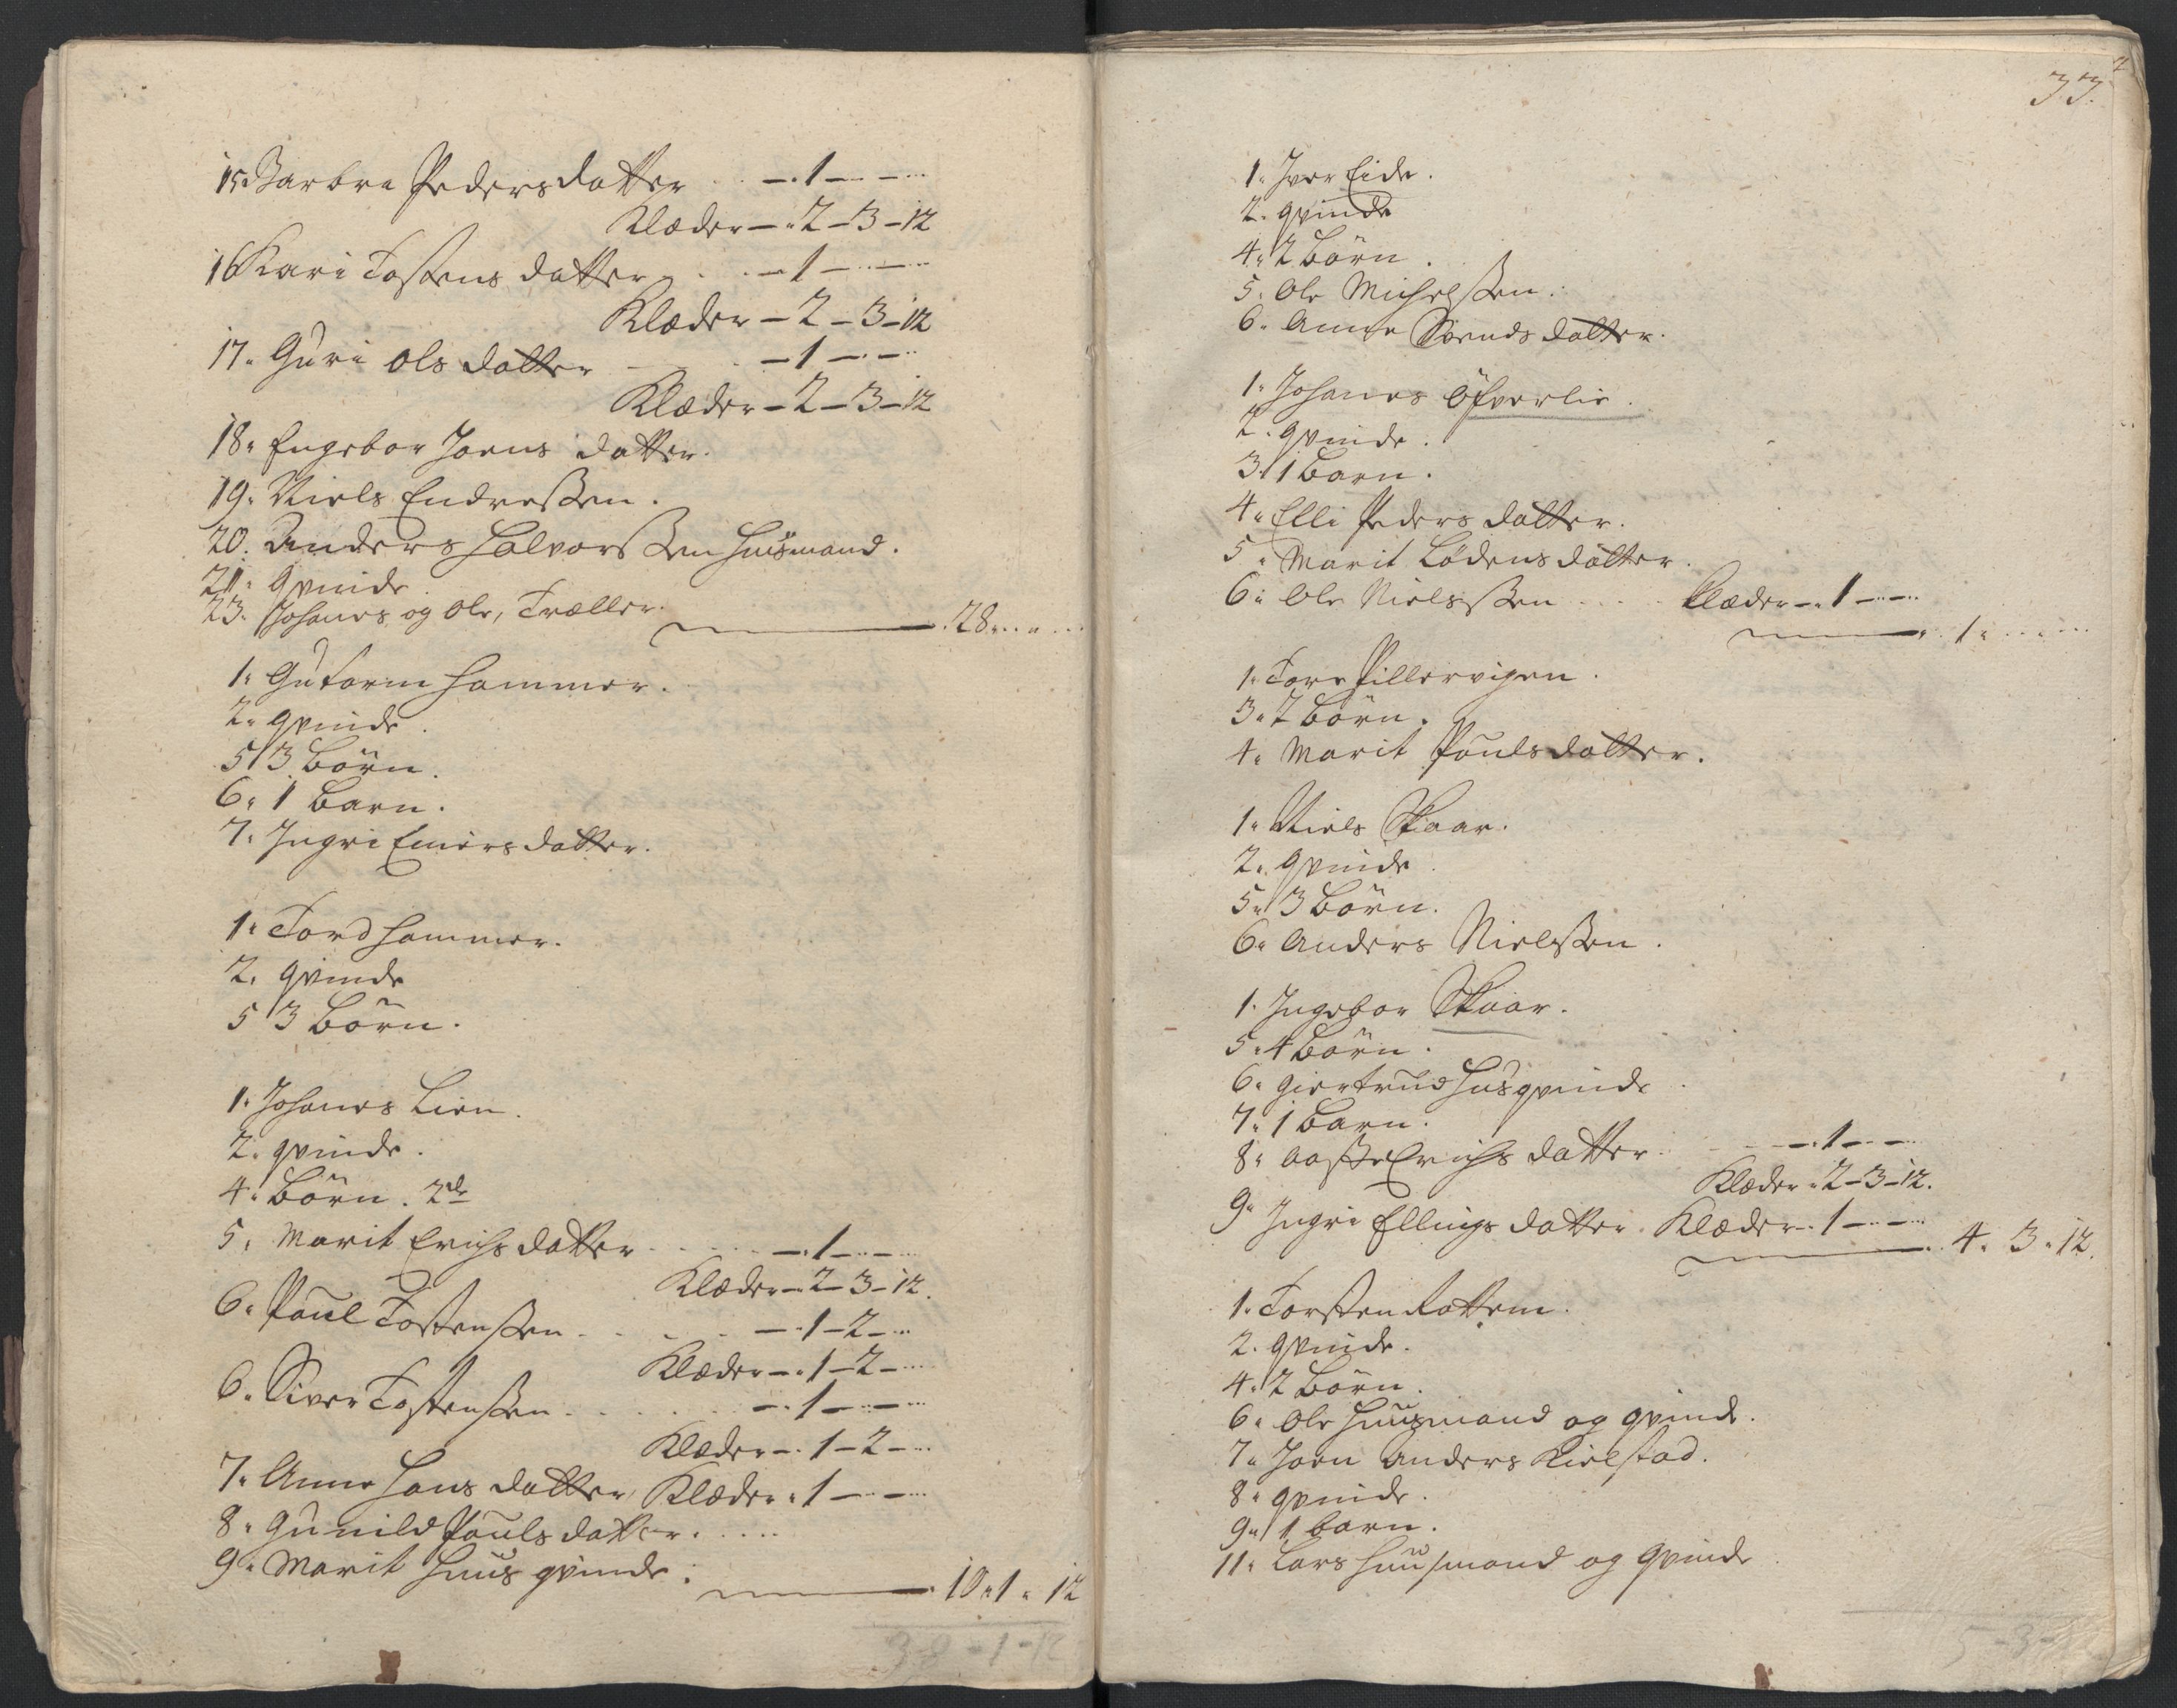 15. Barbra Peders datter . . – 1 – –
Klæder – 2 – 3 – 12
16 Kari Tostens datter . . – 1 – –
Klæder – 2 – 3 – 12
17. Guri Ols datter – . – 1 – –
Klæder – 2 – 3 – 12
18. Engebor Joens datter.
19. Niels Endreßen.
20. Anders Halvorsßen huusmand.
21. qvinde.
23. Johanes og Ole, Træller.
28 . . .
1. Gutorm Hammer.
2. qvinde.
5 3 börn.
6. 1 barn.
7. Ingri Eniers datter.
1. Tord Hammer.
2. qvinde
5 3 börn.
1. Johanes Lien.
2. qvinde.
4. börn. 2de
5. Marit Erichs datter . . . – 1 – –
Klæder – 2 – 3 – 12.
6. Poul Tostenßen . . . – 1 – 2 –
Klæder – 1 – 2 –
6. Siver Tostenßen . . . – 1 – –
Klæder – 1 – 2 –
7. Anne Hans datter, Klæder . 1 – –
8. Gunild Pouls datter . . . .
9. Marit huus qvinde.
10 . 1 . 12
38 – 1 – 12
33.
1. Iver Eide.
2. qvinde
4. 2 börn.
5. Ole Michelßen.
6. Anne Svends datter.
1. Johanes Öfverlie.
2. qvinde.
3. 1 barn.
4. Elli Peders datter.
5. Marit Lödens datter.
6. Ole Nielsßen . . . . Klæder – 1 – –
1 . . . .
1. Tore Pillervigen.
3. 2 börn.
4. Marit Pouls datter.
1. Niels Skaar.
2. qvinde.
5. 3 börn.
6. Anders Nielßen.
1. Ingebor Skaar.
5. 4 börn.
6. giertrud huusqvinde.
7. 1 barn.
8. Aaße Erichs datter . – 1 – –
Klæder . 2 – 3 – 12.
9. Ingri Ellings datter. Klæder . 1 – –
4 . 3 . 12.
1. Torsten Rottem.
2. qvinde.
4. 2 börn.
6. Ole huusmand og qvinde.
7. Joen Anders Kielstad.
8. qvinde.
9. 1 barn.
11. Lars huusmand og qvinde
5 – 3 –